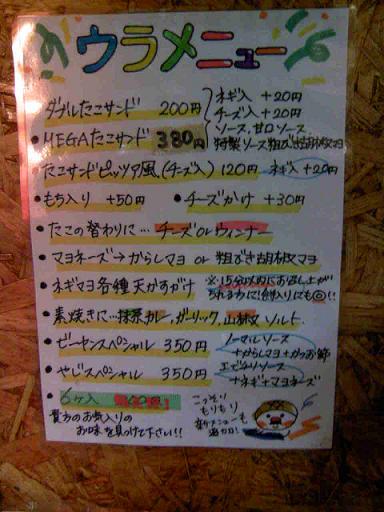 ウラメニュー
ダブルたこサンド 200円
ネギ入 +20円
チーズ入 +20円
ソース、甘口ソース
特製ソース粗びき胡椒マヨ
・MEGAたこサンド 380円
たこサンドピッツァ風(チーズ入) 120円 ネギ入 +20円
・もち入り +50円 ・チーズかけ +30円
・たこの替わりに…チーズorウィンナー
・マヨネーズ→からしマヨ or 粗びき胡椒マヨ
・ネギマヨ各種天かすがけ
※15分以内にお召し上が
・素焼きに…抹茶、カレー、ガーリック、山椒 ソルト
・ピーヤンスペシャル 350円
ノーマルソース
+からしマヨ+かつお節
・やじスペシャル 350円
+ネギ+マヨネーズ
・6ヶ入
貴方のお気入りの
お味を見つけて下さい!!
こっそり
もりもり
新メニューも